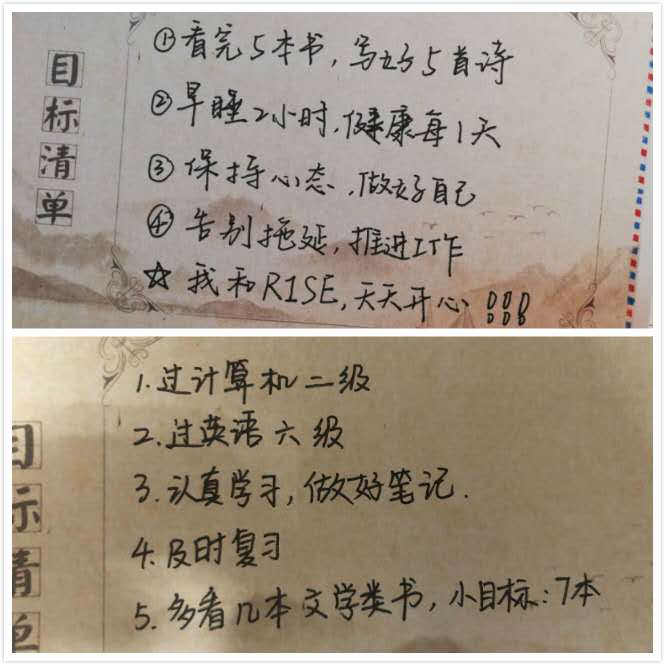 目标清单
①看完5本书,写好5首诗
②早睡2小时,健康每1天
③保持心态,做好自己
④告别拖延,推进工作
☆我和R1SE,天天开心!!!
目标清单
1.过计算机二级
2.过英语六级
3.认真学习,做好笔记.
4.及时复习
5.多看几本文学类书,小目标:7本